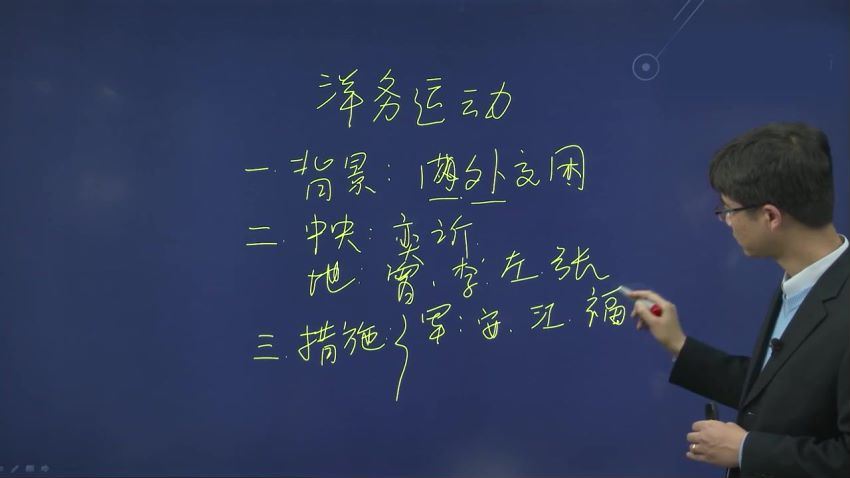 洋务运动
一.背景:内外交困
二.中央:奕䜣.
地:曾.李.左.张
三.措施:{军:安.江.福